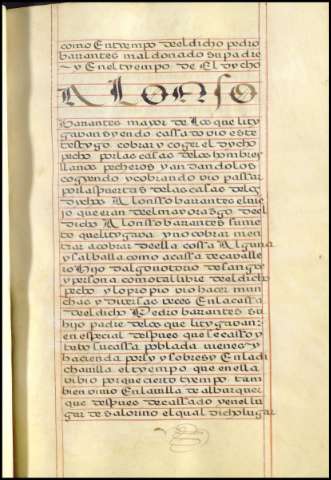 como En tyempo del dicho pedro
barantes maldonado su padre
y En el tyempo de El dycho
ALONSO
barantes mayor de los que lity
gavan syendo cassado vio este
testygo cobrar y coger el dycho
pecho por las casas de los hombres
llanos pecheros y andandolos
cogyendo y cobrando vio passar
por las puertas de las casas del
dycho Alonsso barantes el vie
jo que eran del mayorasgo del
dicho Alonsso barantes su nie
to que litygava y no cobrar men
tar a cobrar de ella cossa Alguna
y salballa como a cassa de cavalle
ro hijo dalgo notorio de sangre
y persona como tal libre del dicho
pecho y lo propio vio hacer mu
chas y diversas veces En la cassa
del dicho Pedro barantes su
hijo padre de los que litygavan:
en especial despues que se casso y
tuvo su cassa poblada vienes y
hacienda por sy y sobre sy En la di
cha villa el tyempo que en ella
vibio porque cierto tyempo tam
bien vivio En la villa de alburquer
que despues de cassado y en el lu
gar de salorino el qual dicho lugar